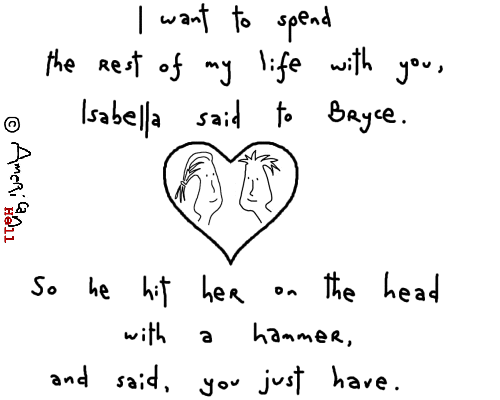 I want to spend
the rest of my life with you,
Isabella said to Bryce.
© American
Hell
So he hit her on the head
with a hammer,
and said, you just have.